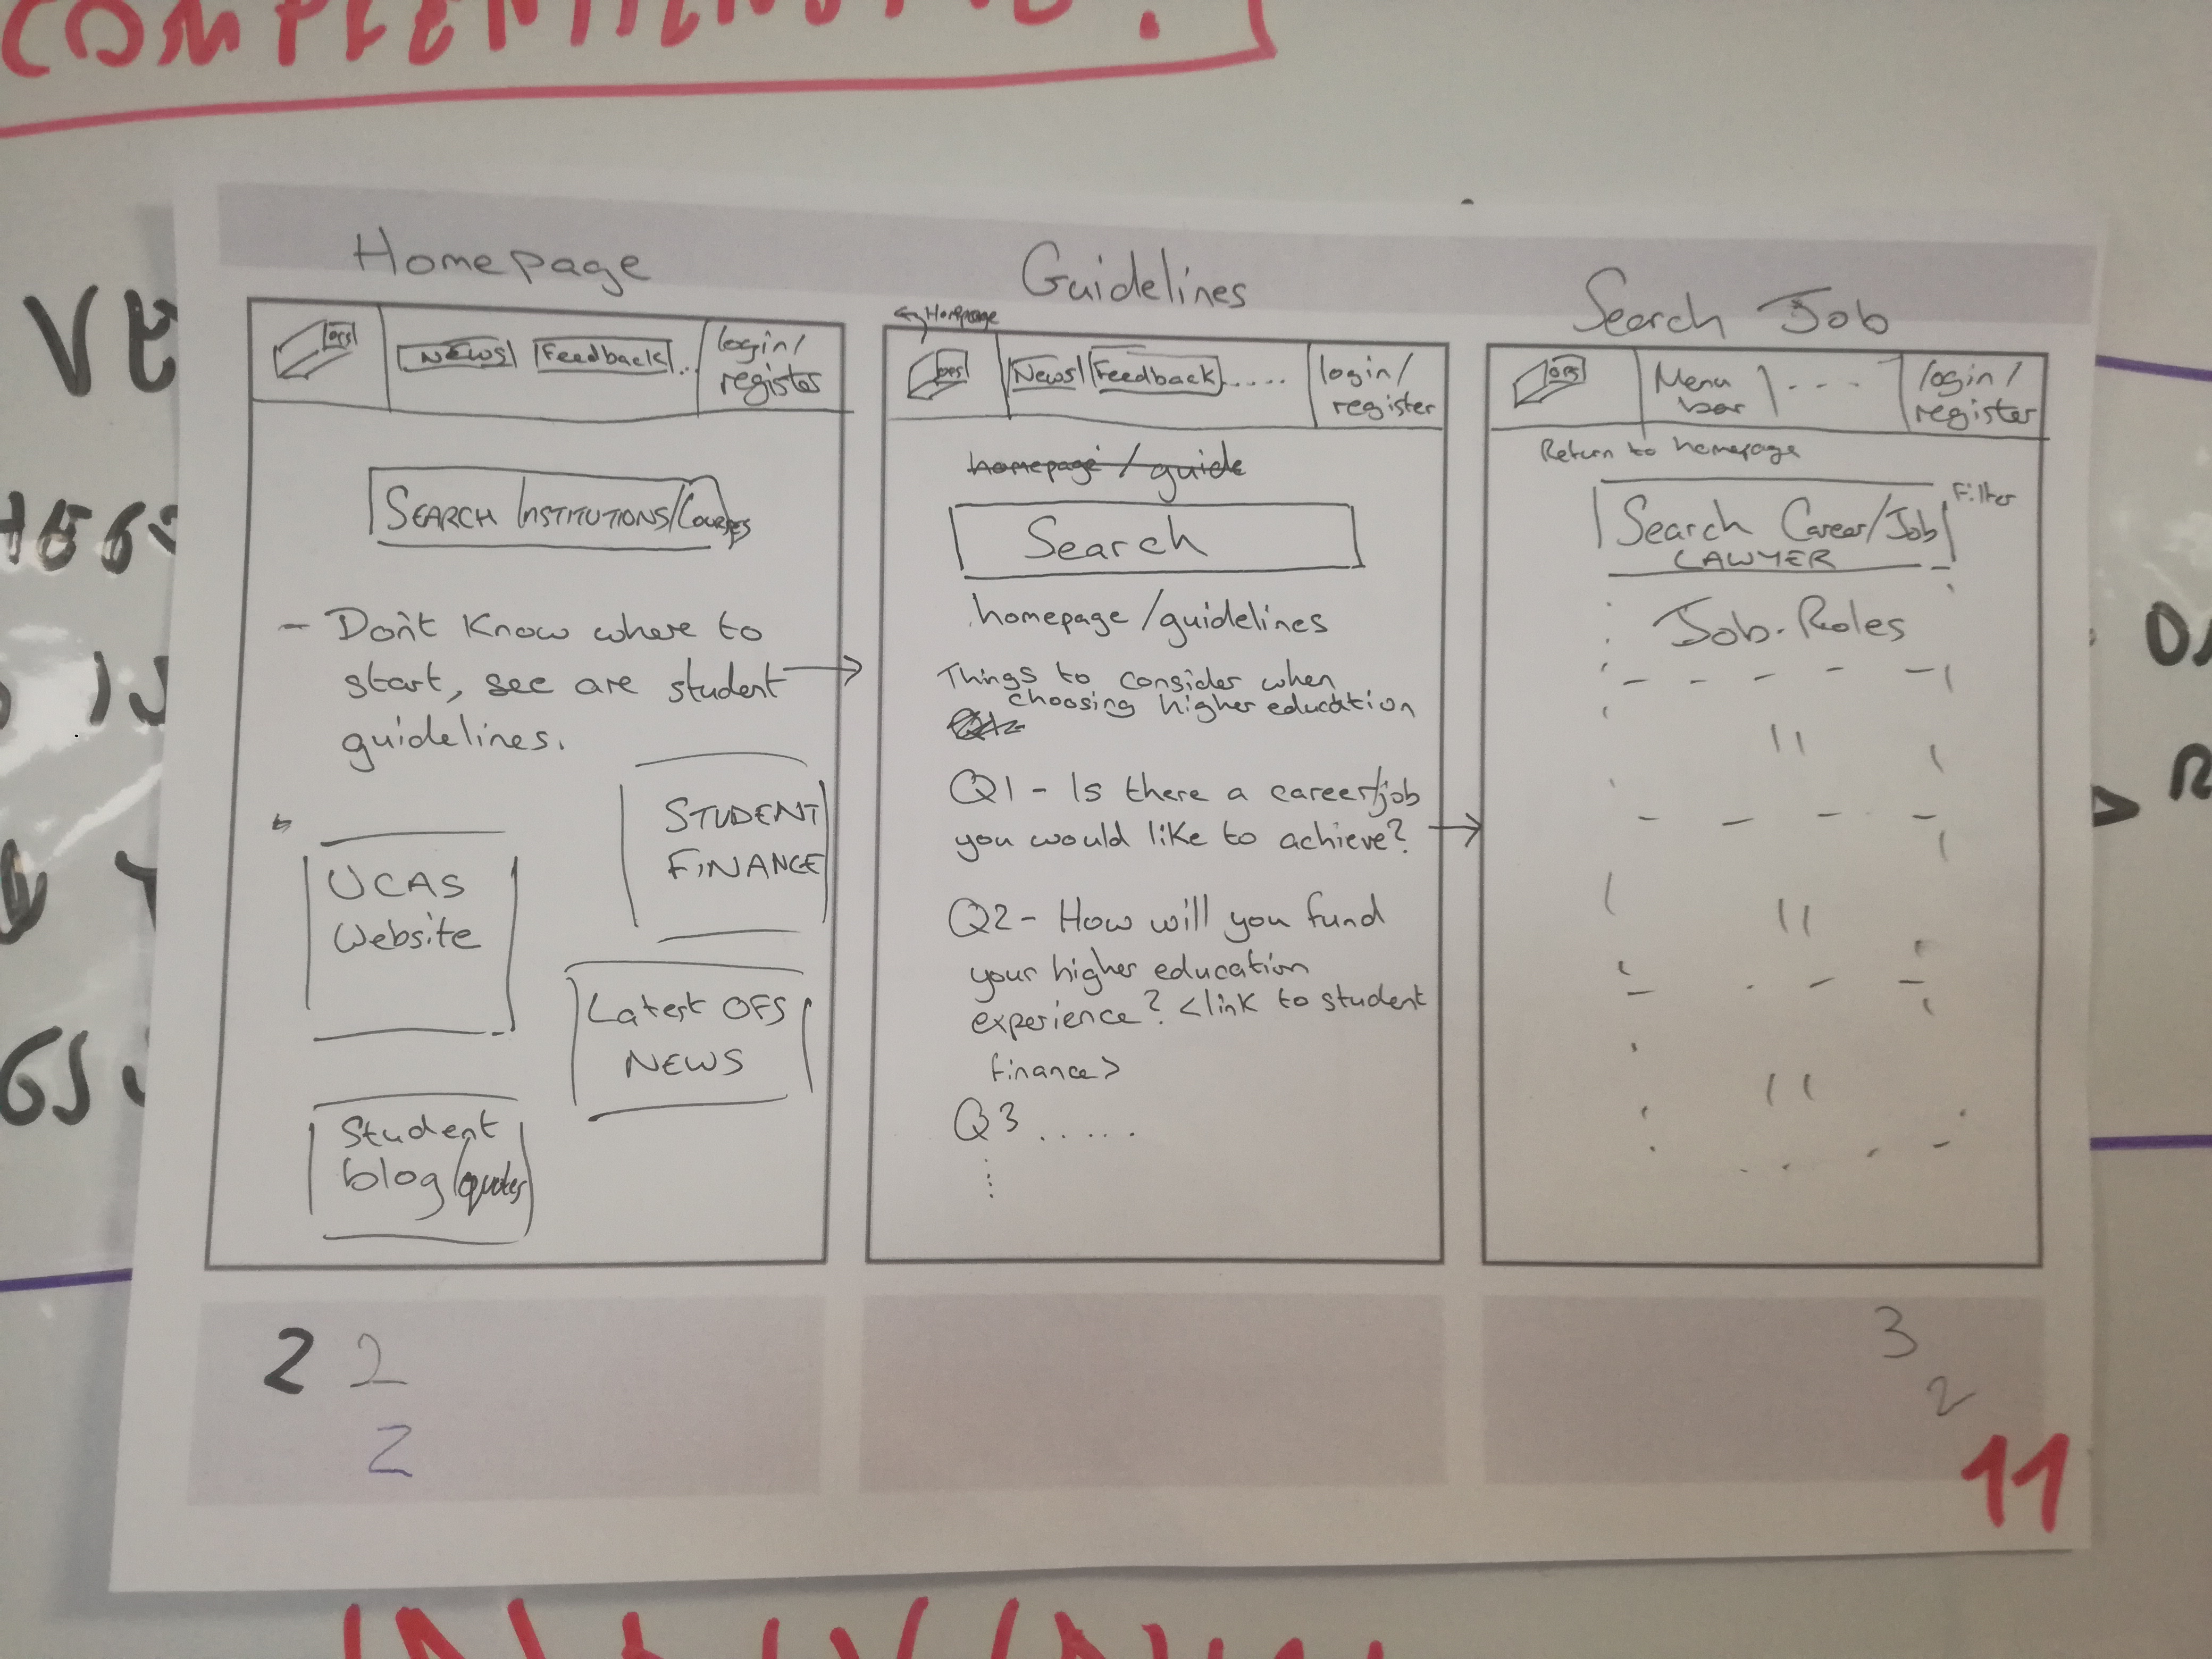 Homepage
OFS
NEWS
Feedback...
login/
register
SEARCH INSTITUTIONS/Courses
- Don't know where to
start, see are student
guidelines.
STUDENT
FINANCE
UCAS
Website
Latest OFS
NEWS
Student
blog/quotes
2 2
2
Guidelines
Homepage
OFS
News
Feedback.....
login/
register
homepage / guide
Search
homepage/guidelines
Things to consider when
choosing higher education
Q1 - Is there a career/job
you would like to achieve?
Q2 - How will you fund
your higher education
experience? <link to student
finance>
Q3 .....
Search Job
OFS
Menu
bar
---
login/
register
Return to homepage
Filter
Search Career/Job
LAWYER
Job Roles
11
11
11
3
2
11